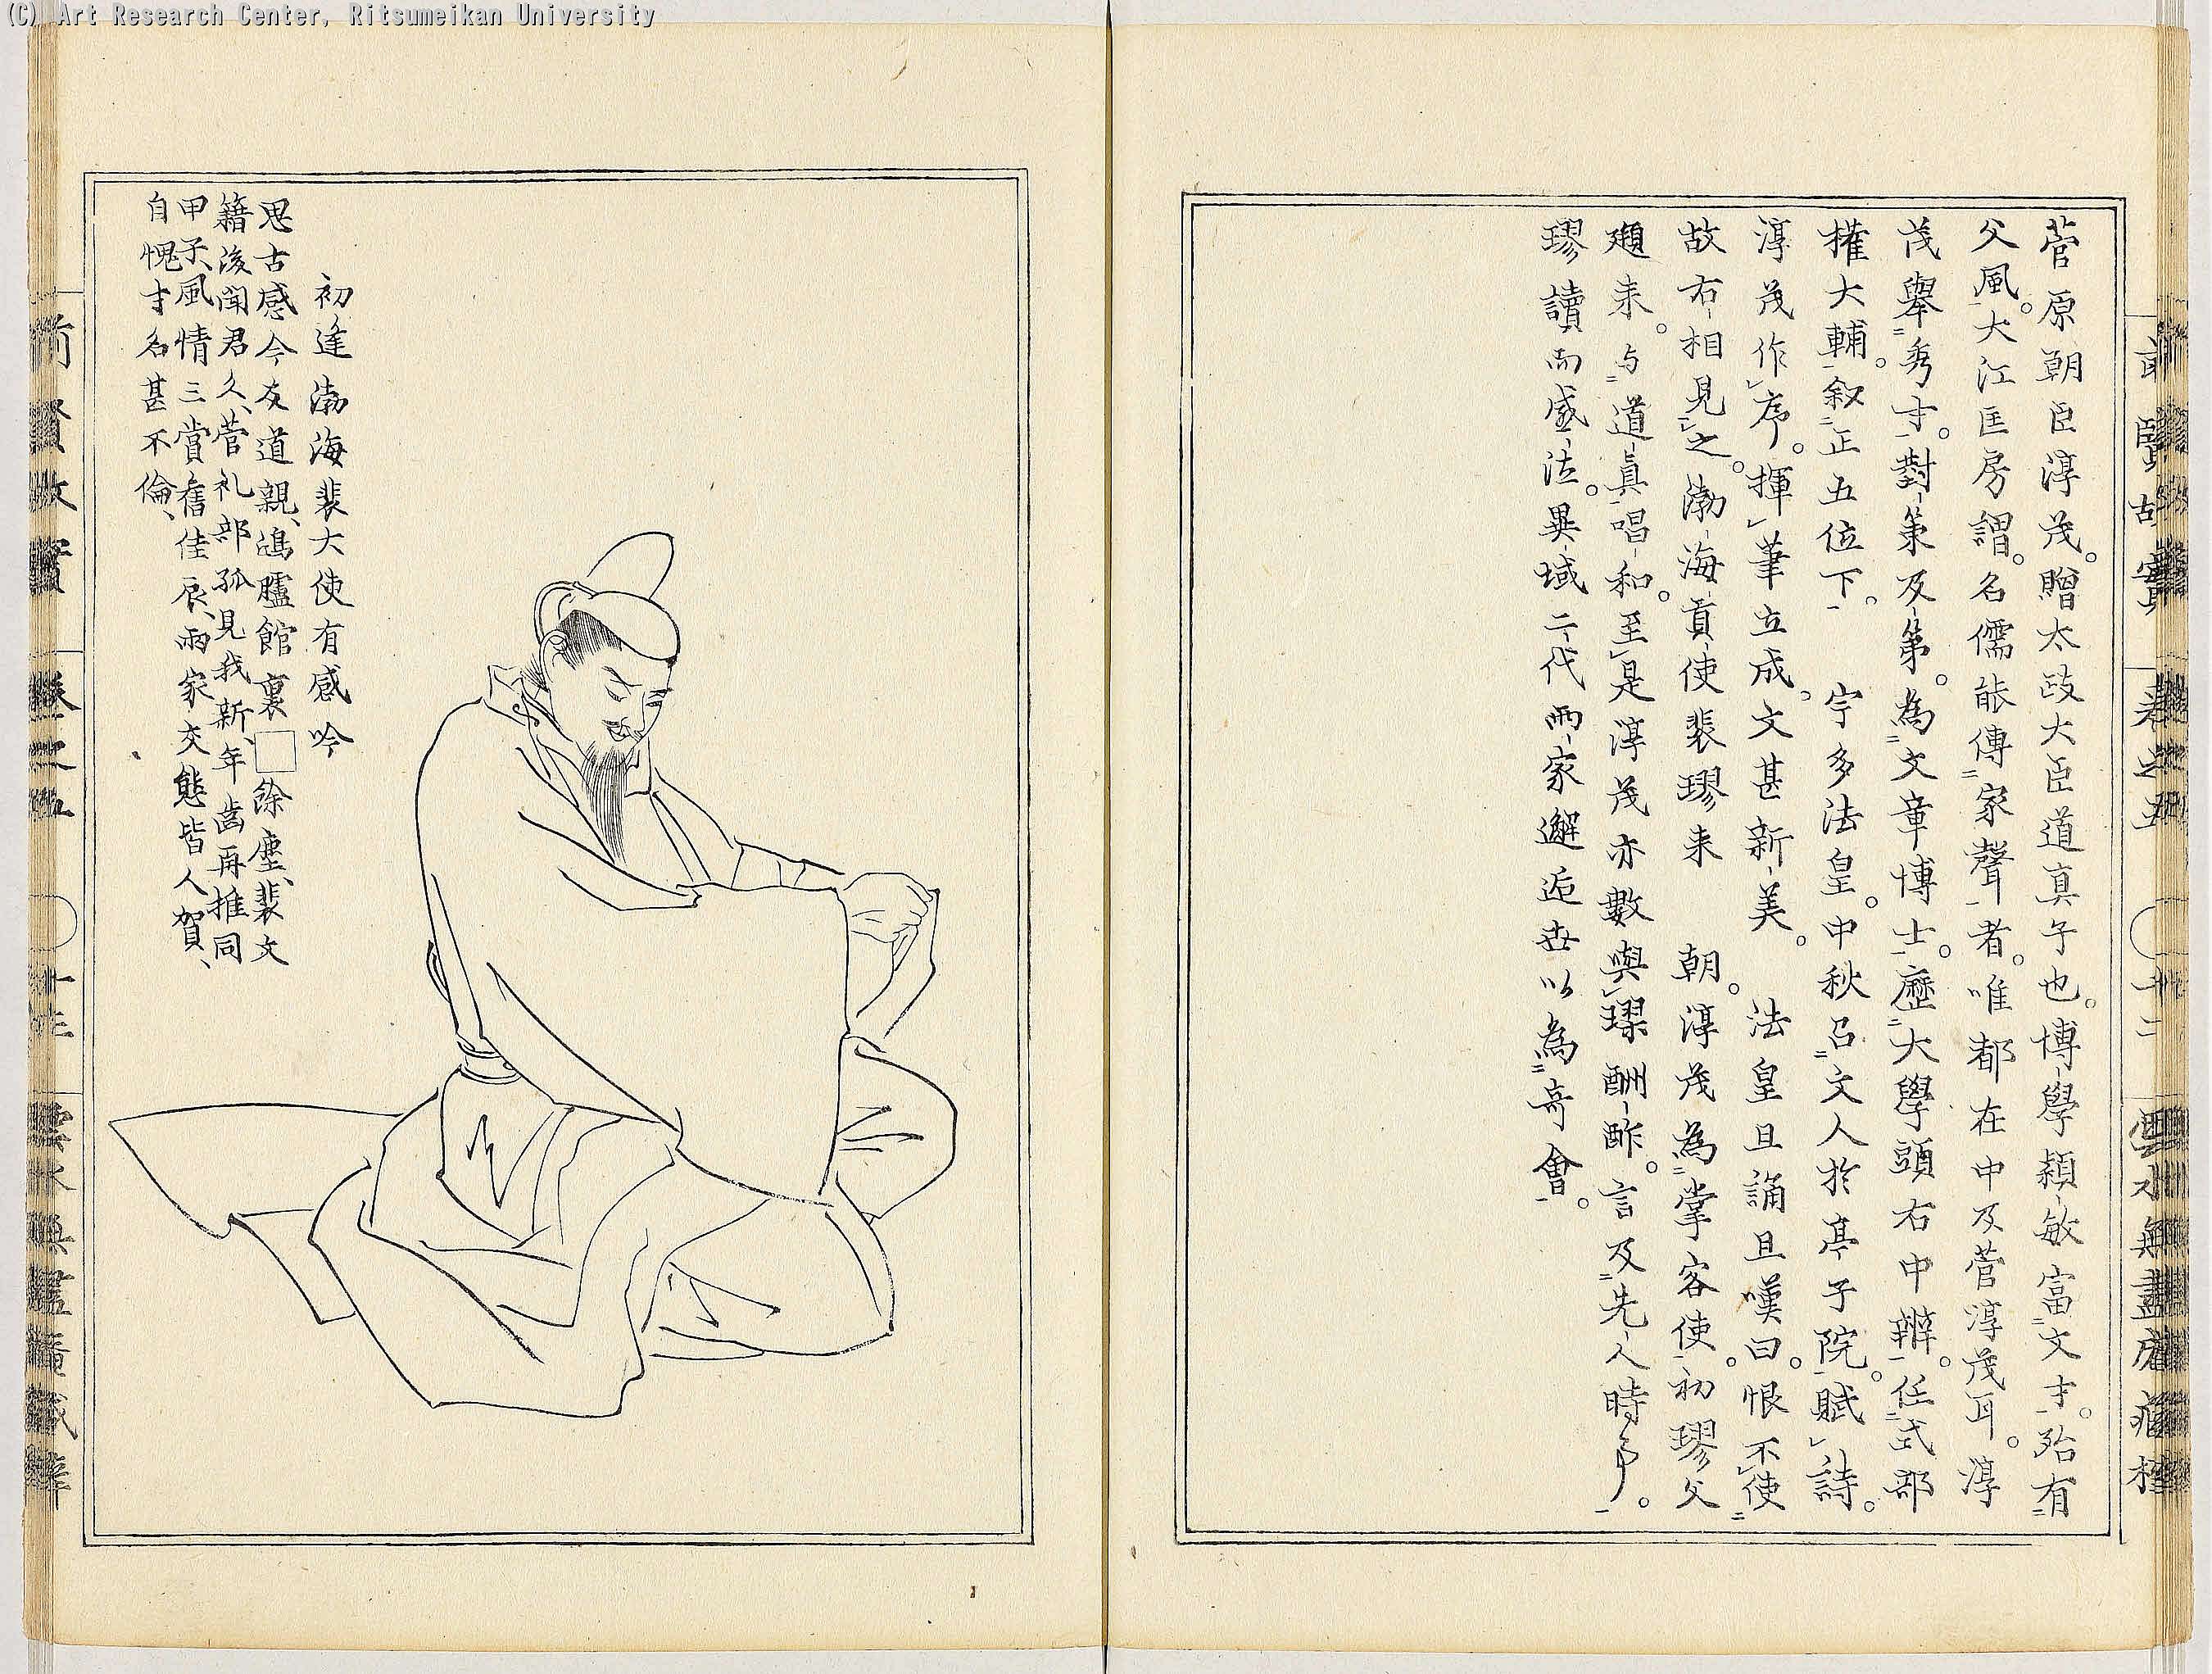 (C) Art Research Center, Ritsumeikan University
菅原朝臣淳茂。贈太政大臣道真子也。博學穎敏富文才。殆有
父風。大江匡房謂。名儒能傳家聲者。唯都在中及菅淳茂耳。淳
茂擧秀才。對策及第。為文章博士。歷大學頭右中辨。任式部
權大輔。叙正五位下。宇多法皇。中秋召文人於亭子院。賦詩。
淳茂作序。揮筆立成。文甚新美。法皇且誦且嘆曰。恨不使
故右相見之。渤海貢使裴璆来朝。淳茂為掌客使。初璆父
遡来。与道眞唱和。至是淳茂亦數與璆酬酢。言及先人時事。
璆讀而感泣。異域二代兩家邂逅世以為奇會。
初逢渤海裴大使有感吟
思古感今友道親、鴻臚館裏□餘塵、裴文
籍後聞君久、菅礼部孤見我新、年齒再推同
甲子、風情三賞舊佳辰、兩家交態皆人賀、
自愧才名甚不倫、
前賢故實 卷之五 十二
前賢故實 卷之五 十三